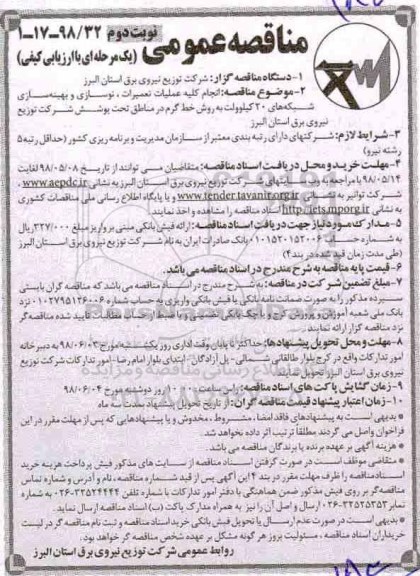 نوبت دوم ۳۲/۹۸-۱۷-۱
مناقصه عمومی (یک مرحله‌ای با ارزیابی کیفی)
۱- دستگاه مناقصه گزار: شرکت توزیع نیروی برق استان البرز
۲- موضوع مناقصه: انجام کلیه عملیات تعمیرات ، نوسازی و بهینه‌سازی
شبکه‌های ۲۰ کیلوولت به روش خط گرم در مناطق تحت پوشش شرکت توزیع
نیروی برق استان البرز
۳- شرایط لازم: شرکتهای دارای رتبه بندی معتبر از سازمان مدیریت و برنامه ریزی کشور (حداقل رتبه ۵
رشته نیرو)
۴- مهلت خرید و محل دریافت اسناد مناقصه: متقاضیان می توانند از تاریخ ۹۸/۰۵/۰۸ لغایت
۹۸/۰۵/۱۴ با مراجعه به وب سایتهای شرکت توزیع نیروی برق استان البرز به نشانی www.aepdc.ir
شرکت توانیر به نشانی www.tender.tavanir.org.ir و یا پایگاه اطلاع رسانی ملی مناقصات کشوری
به نشانی http://iets.mporg.ir اسناد مناقصه را مشاهده و اخذ نمایند.
۵- مدارک مورد نیاز جهت دریافت اسناد مناقصه: ارائه فیش بانکی مبنی بر واریز مبلغ ۳۲۷/۰۰۰ ریال
به شماره حساب ۰۱۰۱۵۲۰۱۵۲۰۰۶ بانک صادرات ایران به نام شرکت توزیع نیروی برق استان البرز
(طی مدت زمان قید شده در بند ۴)
۶- قیمت پایه مناقصه به شرح مندرج در اسناد مناقصه می باشد.
۷- مبلغ تضمین شرکت در مناقصه: به شرح مندرج در اسناد مناقصه می باشد که مناقصه گران بایستی
سپرده مذکور را به صورت ضمانت نامه بانکی یا فیش بانکی واریزی به حساب شماره ۰۱۰۲۷۹۵۱۲۶۰۰۶ نزد
بانک ملی شعبه آموزش و پرورش کرج و یا چک بانکی تضمینی و یا ضمانت مطالبات تایید شده مناقصه گر
نزد مناقصه گزار ارائه نمایند.
۸- مهلت و محل تحویل پیشنهادها: حداکثر تا پایان وقت اداری روز یکشنبه مورخ ۹۸/۰۶/۰۳ به دبیرخانه
امور تدارکات واقع در کرج بلوار طالقانی شمالی - پل آزادگان - ابتدای بلوار امام رضا - امور تدارکات شرکت توزیع
نیروی برق استان البرز تحویل نمایند.
۹- زمان گشایش پاکت های اسناد مناقصه: راس ساعت ۱۰:۰۰ روز دوشنبه مورخ ۹۸/۰۶/۰۴
۱۰- زمان اعتبار پیشنهاد قیمت مناقصه گران: از تاریخ تحویل پیشنهاد بمدت ماه
* بدیهی است به پیشنهادهای فاقد امضا ، مشروط ، مخدوش و یا پیشنهادهایی که پس از مهلت مقرر در این
فراخوان واصل می گردند مطلقاً ترتیب اثر داده نخواهد شد.
* هزینه آگهی بر عهده برنده یا برندگان مناقصه می باشد.
* متقاضی موظف است در صورت گرفتن اسناد مناقصه از سایت های مذکور فیش پرداخت هزینه خرید
اسناد مناقصه را ظرف مهلت مقرر در بند ۴ این آگهی پس از قید شماره مناقصه ، نام و آدرس و شماره تماس
مناقصه گر بر روی فیش مذکور ضمن هماهنگی با دفتر امور تدارکات با شماره تلفن ۳۲۵۲۴۴۴۲-۰۲۶ به شماره
نمابر ۳۲۵۲۵۳۵۳-۰۲۶ ارسال و اصل آن را نیز به همراه مدارک پاکت (ب) اسناد مناقصه ارسال نماید.
* بدیهی است در صورت عدم ارسال یا تحویل فیش بانکی خرید اسناد مناقصه و ثبت نام مناقصه گر در لیست
خریداران اسناد مناقصه ، مسئولیت بروز هر گونه مشکل بر عهده شخص مناقصه گر خواهد بود.
روابط عمومی شرکت توزیع نیروی برق استان البرز